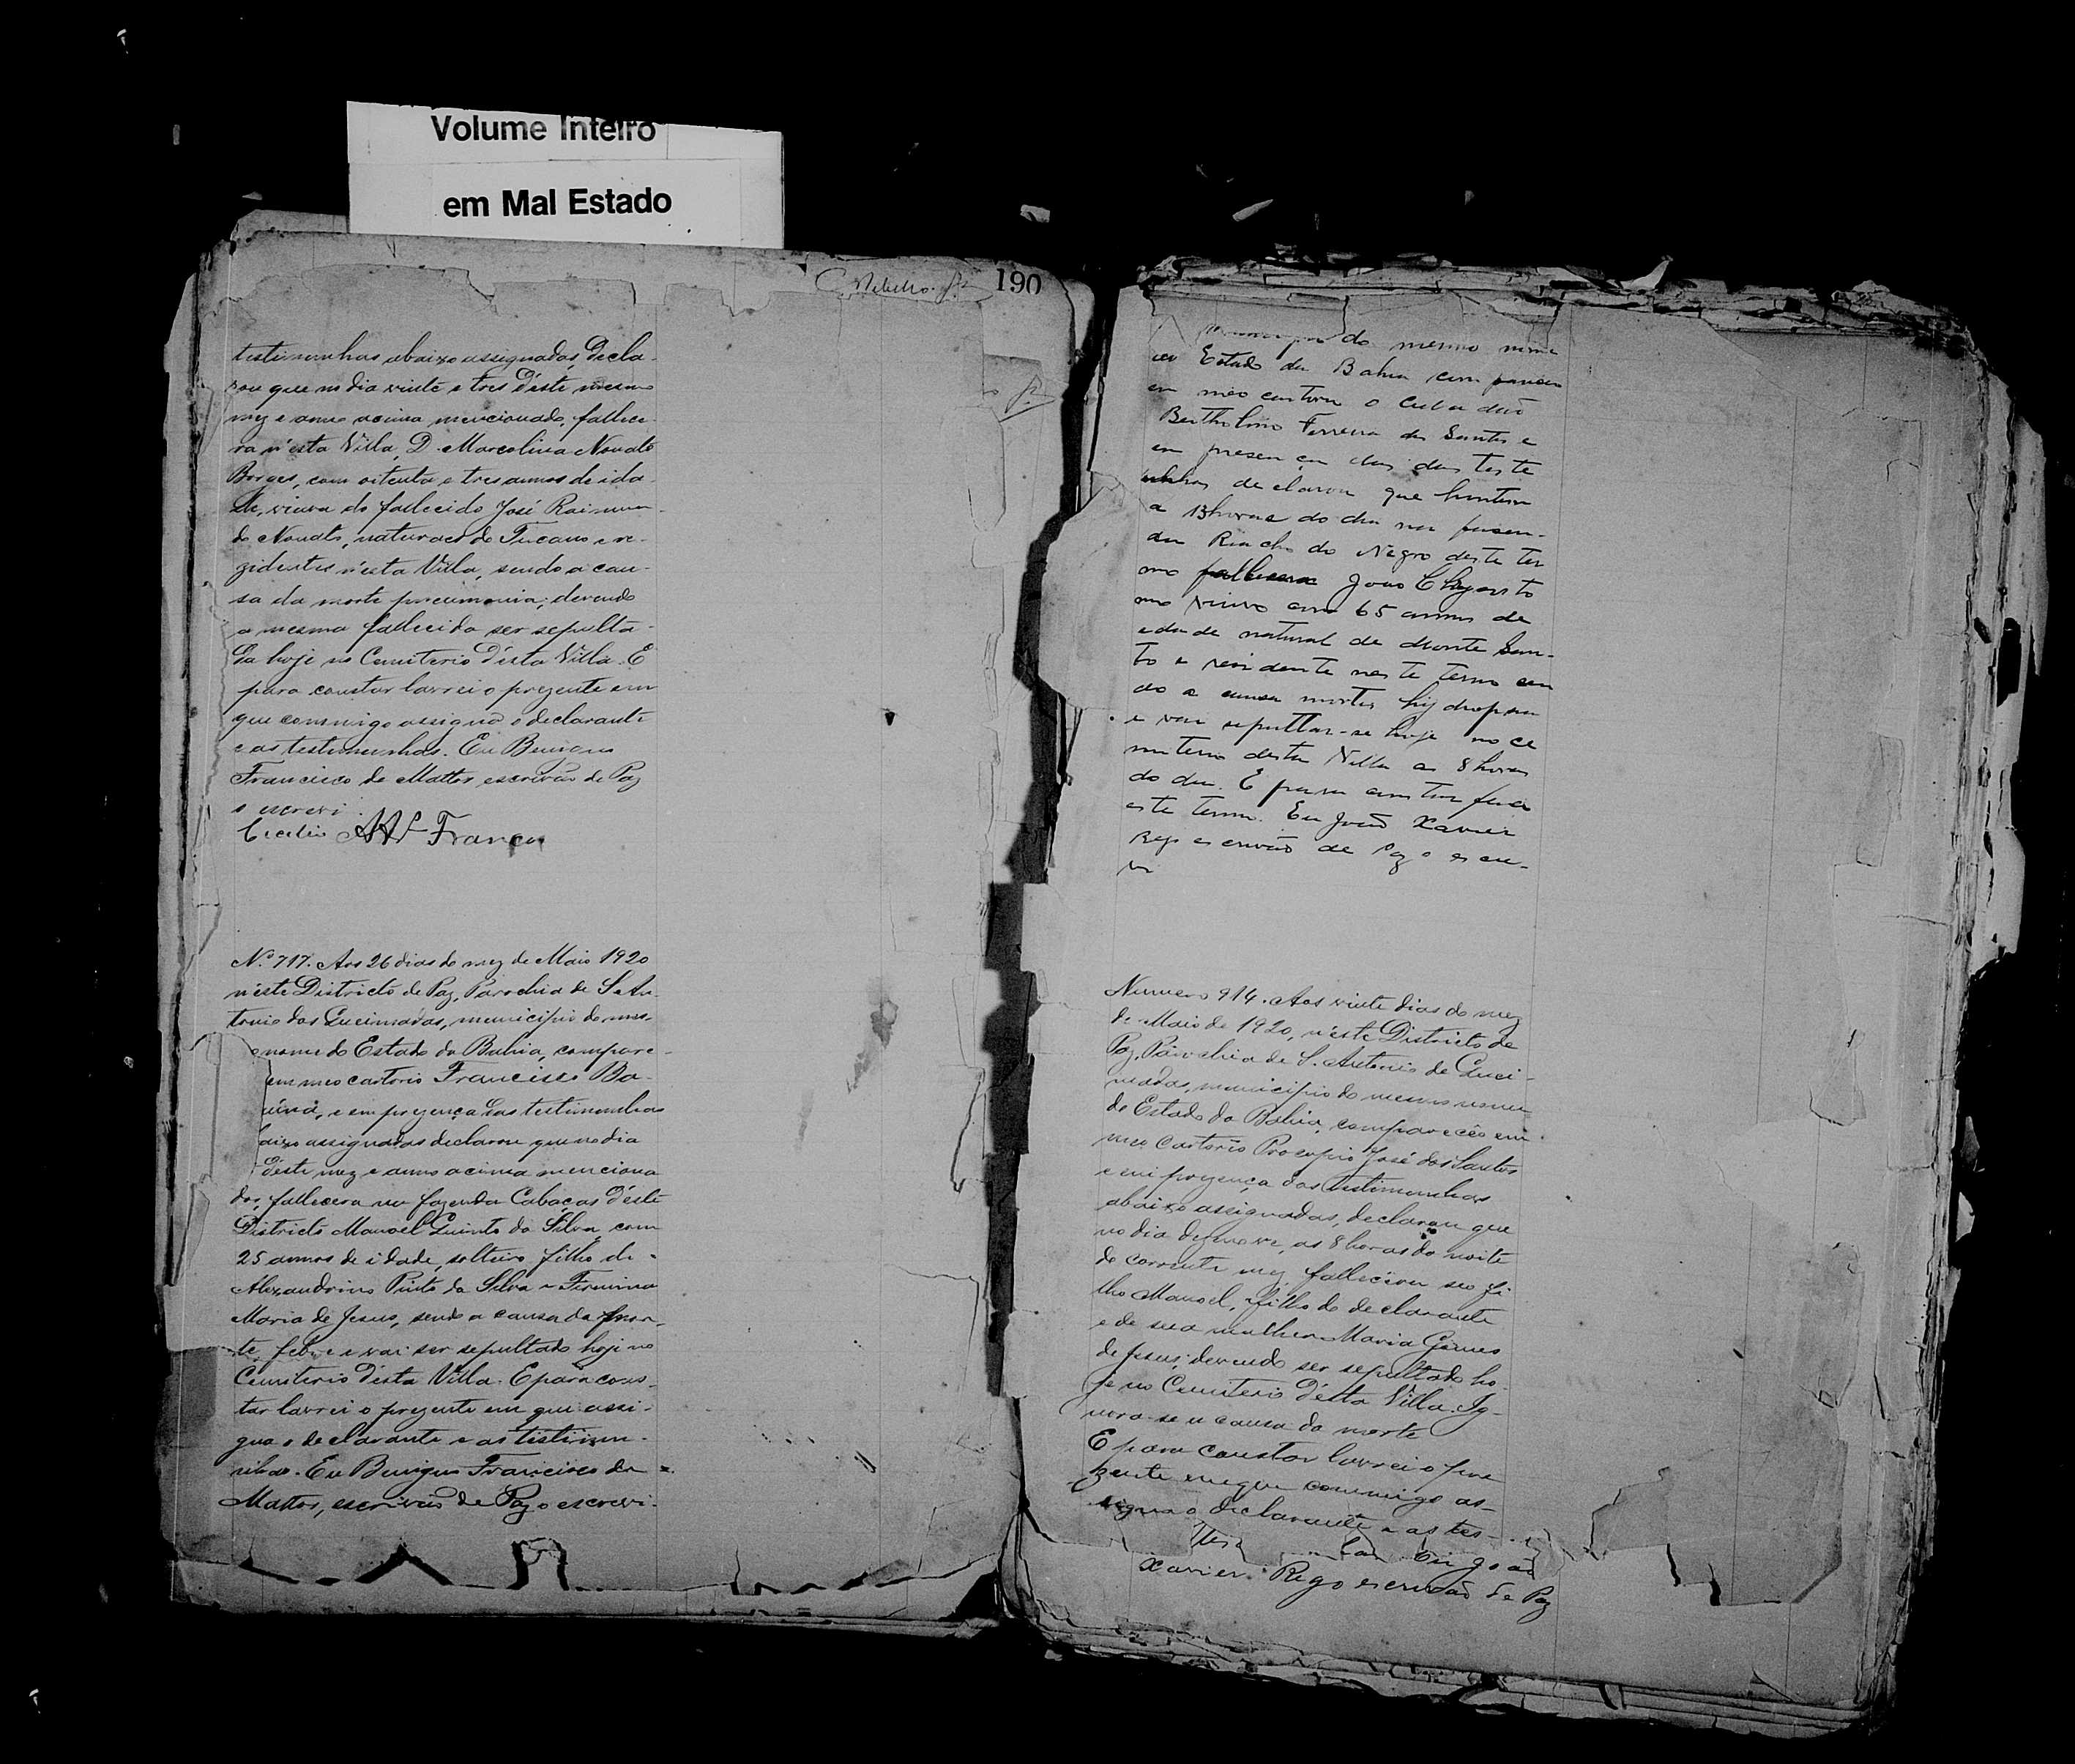 Volume Inteiro
em Mal Estado
190
testimunhas abaixo assignadas, Decla-
rou que no dia vinte e tres d'este mesmo
mez e anno acima mencionado, fallece-
ra n'esta Villa, D. Marcolina Novato
Borges, com oitenta e tres annos de ida-
de, viuva do fallecido José Raimun-
do Novato, naturaes de Tucano e re-
zidentes n'esta Villa, sendo a cau-
sa da morte pneumonia; devendo
a mesma fallecida ser sepulta-
da hoje no Cemiterio d'esta Villa. E
para constar lavrei o prezente em
que commigo assigna o declarante
e as testimunhas. Eu Benigno
Francisco de Mattos, escrivão de Paz
o escrevi.
Franca
Nº 717. Aos 26 dias do mez de Maio 1920
n'este Districto de Paz, Parochia de S. An-
tonio das Queimadas, municipio do mes-
nome do Estado da Bahia, compare-
em meo cartorio Francisco
e em prezença das testimunhas
baixo assignadas declarou que no dia
d'este mez e anno acima menciona
dos, fallecera na fazenda Cabaças d'este
Districto Manoel Quinto da Silva, com
25 annos de idade, solteiro, filho de
Alexandrino Pinto da Silva e Firmina
Maria de Jesus, sendo a causa da mor-
te, febre e vai ser sepultado hoje no
Cemiterio d'esta Villa. E para cons-
tar lavrei o prezente em que assi-
gna o declarante e as testimu-
nhas. Eu Benigno Francisco de
Mattos, escrivão de Paz o escrevi.
do mesmo nome
Estado da Bahia compareceu
em meo cartorio o Cidadão
Bertholino Ferreira dos Santos e
em presença das duas teste
unhas declarou que hontem
a 13 horas do dia na fasen-
da Riacho do Negro deste ter
mo fallecera João Chrysosto
mo viuvo com 65 annos de
edade natural de Monte San-
to e residente neste termo sen
do a causa mortes hydropsia
e vai sepultar-se hoje no ce
miterio desta Villa as 8 horas
do dia. E para constar faço
este termo. Eu João Xavier
Rego escrivão de Paz o escre-
vi
Numero 914. Aos vinte dias do mez
de Maio de 1920, n'este Districto de
Paz, Parochia de S. Antonio de Quei-
madas, municipio do mesmo nome
do Estado da Bahia, compareceo em
meo Cartorio Procopio José dos Santos
e em prezença das testimunhas
abaixo assignadas, declarou que
no dia dezenove, as 8 horas da noite
do corrente mez, fallecêra seo fi-
lho Manoel, filho do declarante
e de sua mulher Maria Gomes
de Jesus; devendo ser sepultado ho-
je no Cemiterio d'esta Villa. Ig-
nora-se a causa da morte
E para constar lavrei o pre
zente em que commigo as-
signa o declarante e as tes-
Eu João
Xavier Rego escrivão de Paz